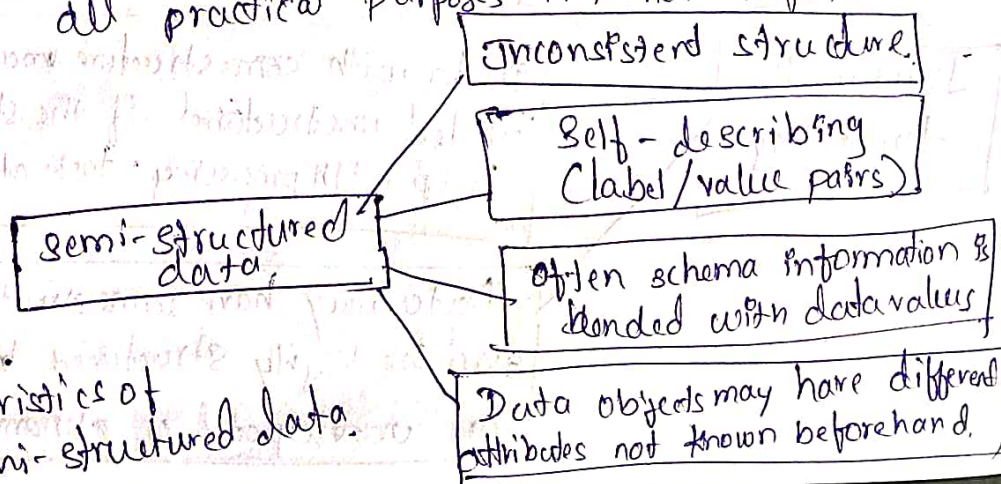 all practical purposes
Inconsistend structure.
Self-describing
(label/value pairs)
semi-structured
data.
often schema information is
blended with data values
Data objects may have different
attributes not known beforehand.
ristics of
mi-structured data.